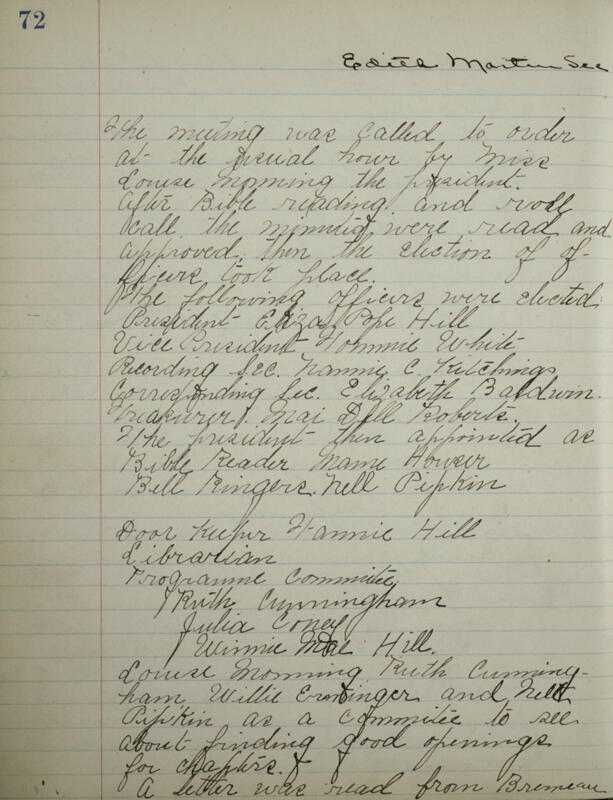 72
Edith Martin Sec
The meeting was called to order
at the usual hour by Miss
Louise Monning the president.
After Bible reading and roll
call the minutes were read and
approved, then the election of of-
ficers took place.
The following officers were elected:
President Eliza Pope Hill
Vice President Tommie White
Recording Sec. Nannie C. Kitchings
Corresponding Sec. Elizabeth Baldwin.
Treasurer. Mai Dell Roberts.
The president then appointed as
Bible Reader Mame Howser
Bell Ringers. Nell Pipkin
Door Keeper Fannie Hill
Librarian
Programme Committee
Ruth Cunningham
Julia Coney
Winnie Mae Hill.
Louise Monning Ruth Cunning-
ham Willie and Nell
Pipkin as a committee to see
about finding good openings
for chapters.
A letter was read from Breneau